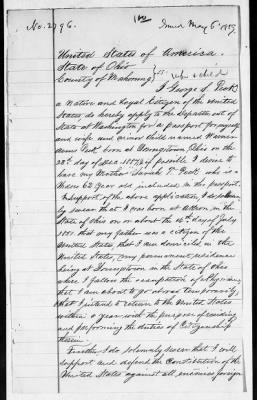 No. 2796.
Issued May 6" 1889.
United States of America.
State of Ohio
County of Mahoning } ss: wife & child
I George S. Peck
a Native and Loyal Citizen of the United
States, do hereby apply to the Department of
State at Washington for a passport for myself
and wife and minor child named
Peck born at Youngstown, Ohio on the
28th day of Dec. 1887, & if possible I desire to
have my Mother Sarah T. Peck who is a
62 years old included in this passport.
In support of the above application I do solemn-
ly swear that I was born at Akron in the
State of Ohio on or about the 16th day of July
1851 that my father was a citizen of the
United States, that I am domiciled in the
United States, my permanent residence
being at Youngstown in the State of Ohio
where I follow the occupation of Physician
that I am about to go abroad temporarily
that I intend to return to the United States
within a year with the purpose of residing
and performing the duties of Citizenship
therein.
Further, I do solemnly swear that I will
support and defend the Constitution of the
United States against all enemies foreign